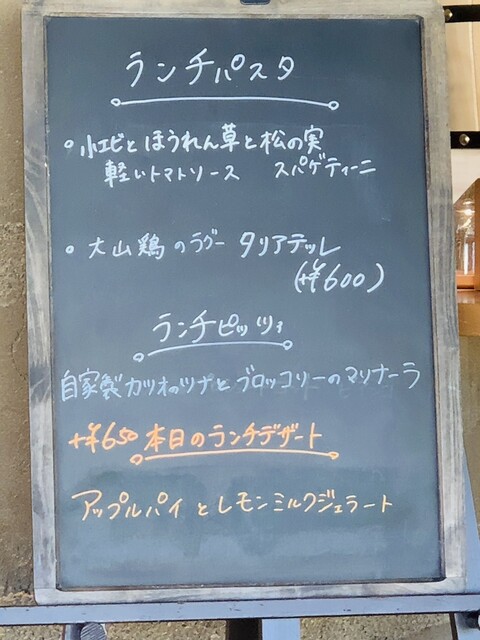 ランチパスタ
・小エビとほうれん草と松の実
軽いトマトソース スパゲティーニ
・大山鶏のラグー タリアテッレ
(+¥600)
ランチピッツァ
自家製カツオのツナとブロッコリーのマリナーラ
+¥650 本日のランチデザート
アップルパイとレモンミルクジェラート